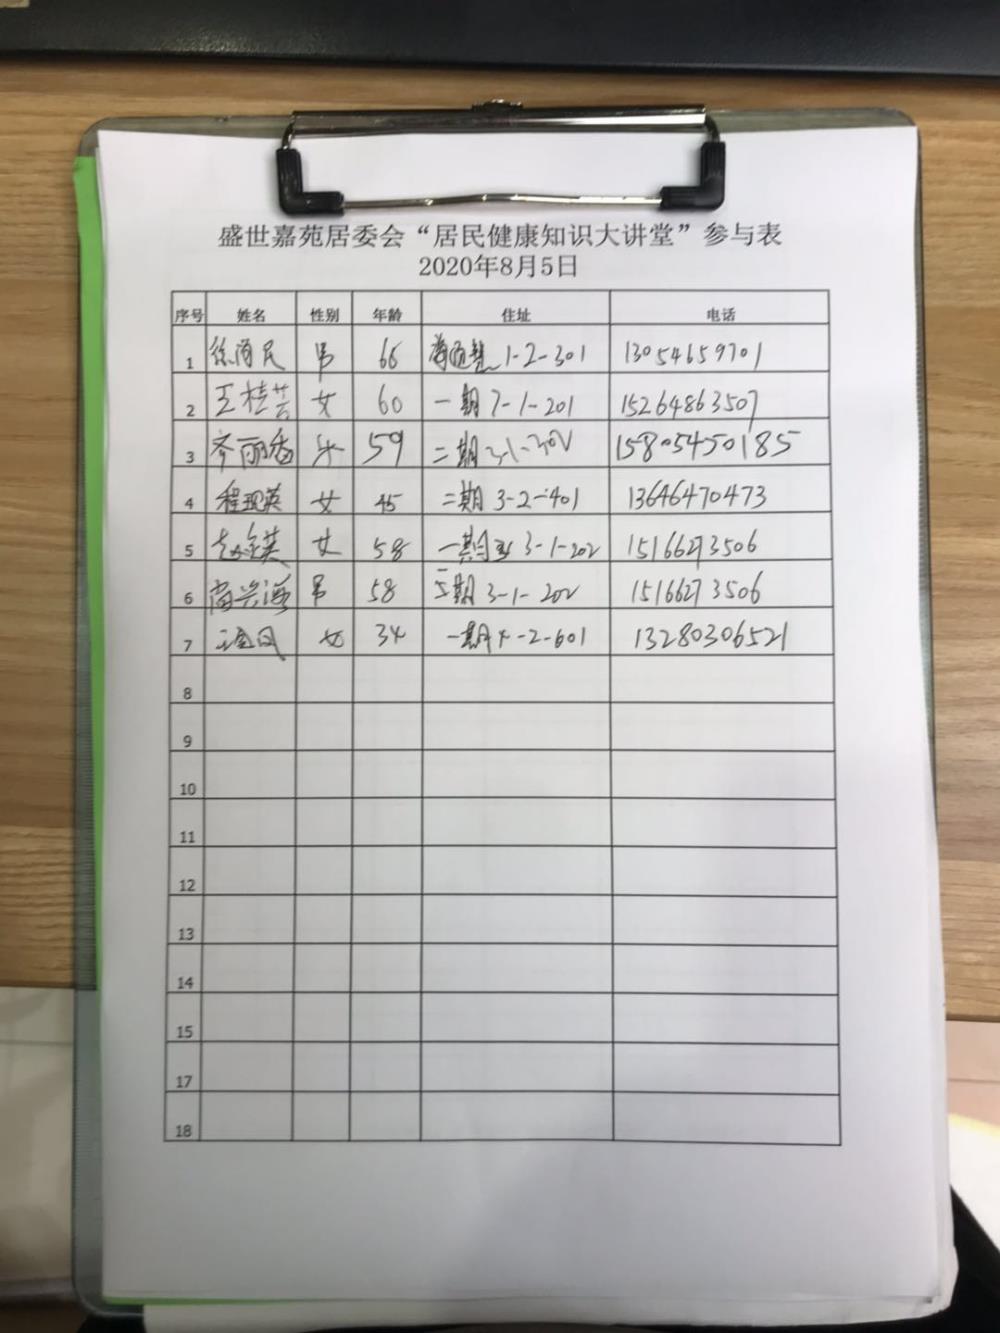 盛世嘉苑居委会“居民健康知识大讲堂”参与表
2020年8月5日
序号 姓名 性别 年龄 住址 电话
1 徐 民 男 66 1-2-301 13054659701
2 王桂芸 女 60 一期7-1-201 15264863507
3 齐丽香 女 59 二期3-1-302 15805450185
4 程现英 女 45 二期3-2-401 13646470473
5 英 女 58 一期 3-1-202 15166273506
6 尚兴海 男 58 期3-1-202 15166273506
7 凤 女 34 一期4-2-601 13280306521
8
9
10
11
12
13
14
15
17
18